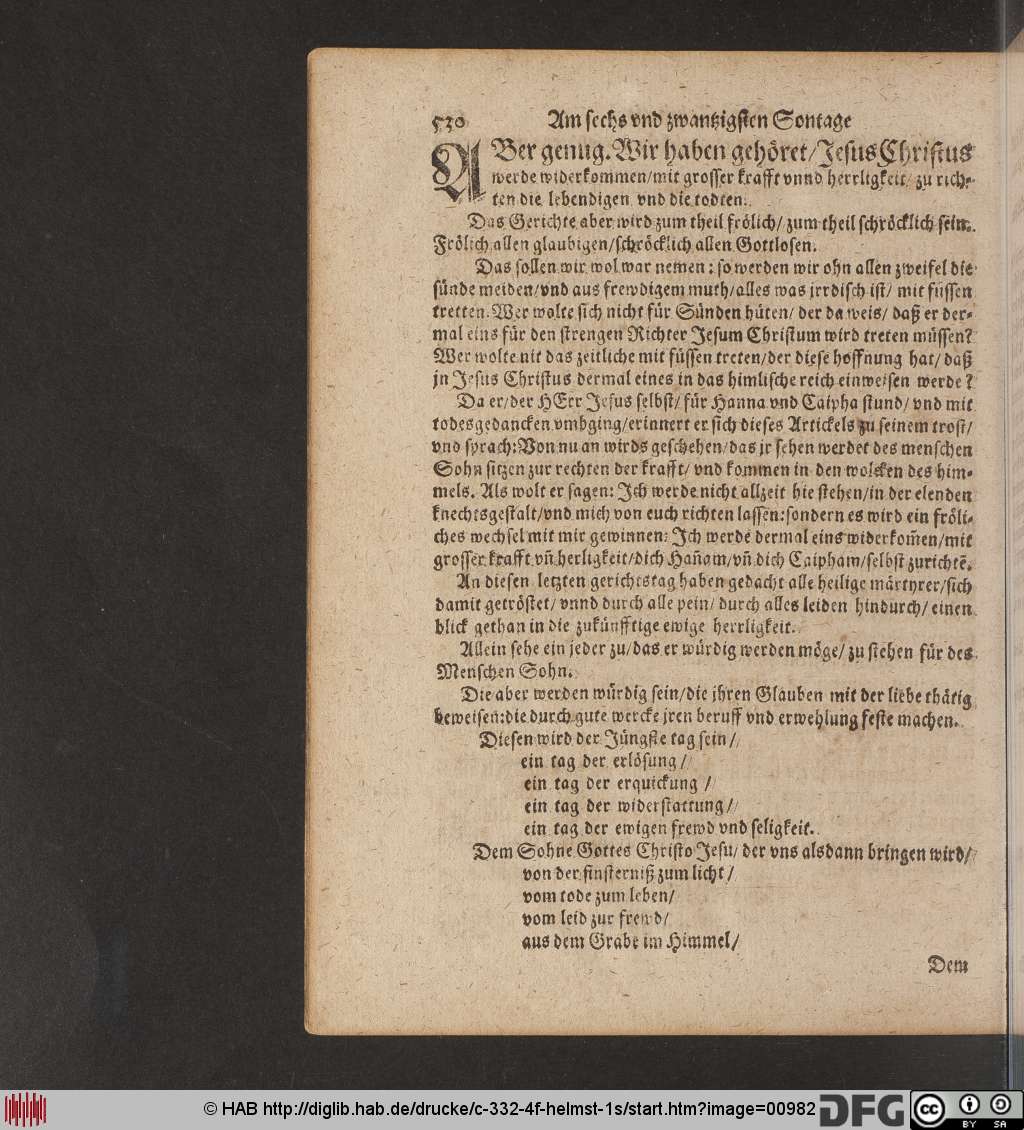 530 Am sechs vnd zwantzigsten Sontage
ABer genug. Wir haben gehöret/ Jesus Christus
werde widerkommen/ mit grosser krafft vnnd herrligkeit/ zu rich-
ten die lebendigen vnd die todten.
Das Gerichte aber wird zum theil frölich/ zum theil schröcklich sein.
Frölich allen glaubigen/ schröcklich allen Gottlosen.
Das sollen wir wol war nemen: so werden wir ohn allen zweifel die
sünde meiden/ vnd aus frewdigem muth/ alles was jrrdisch ist/ mit füssen
tretten. Wer wolte sich nicht für Sünden hüten/ der da weis/ daß er der-
mal eins für den strengen Richter Jesum Christum wird treten müssen?
Wer wolte nit das zeitliche mit füssen treten/ der diese hoffnung hat/ daß
jn Jesus Christus dermal eines in das himlische reich einweisen werde?
Da er/ der HErr Jesus selbst/ für Hanna vnd Caipha stund/ vnd mit
todesgedancken vmbging/ erinnert er sich dieses Artickels zu seinem trost/
vnd sprach: Von nu an wirds geschehen/ das jr sehen werdet des menschen
Sohn sitzen zur rechten der krafft/ vnd kommen in den wolcken des him-
mels. Als wolt er sagen: Jch werde nicht allzeit hie stehen/ in der elenden
knechtsgestalt/ vnd mich von euch richten lassen: sondern es wird ein fröli-
ches wechsel mit mir gewinnen: Jch werde dermal eins widerkom̃en/ mit
grosser krafft vñ herligkeit/ dich Hañam/ vñ dich Caipham/ selbst zurichtẽ.
An diesen letzten gerichtstag haben gedacht alle heilige märtyrer/ sich
damit getröstet/ vnnd durch alle pein/ durch alles leiden hindurch/ einen
blick gethan in die zukünfftige ewige herrligkeit.
Allein sehe ein jeder zu/ das er würdig werden möge/ zu stehen für des
Menschen Sohn.
Die aber werden würdig sein/ die jhren Glauben mit der liebe thätig
beweisen: die durch gute wercke jren beruff vnd erwehlung feste machen.
Diesen wird der Jüngste tag sein/
ein tag der erlösung/
ein tag der erquickung/
ein tag der widerstattung/
ein tag der ewigen frewd vnd seligkeit.
Dem Sohne Gottes Christo Jesu/ der vns alsdann bringen wird/
von der finsterniß zum licht/
vom tode zum leben/
vom leid zur frewd/
aus dem Grabe im Himmel/
Dem
© HAB http://diglib.hab.de/drucke/c-332-4f-helmst-1s/start.htm?image=00982 DFG cc BY SA